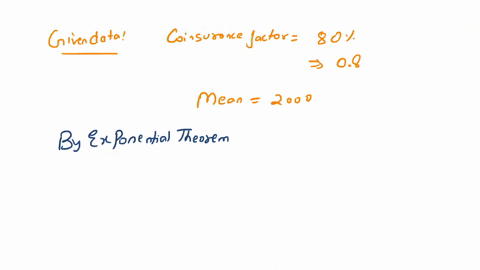 Given data! Coinsurance factor = 80%
⇒ 0.8
Mean = 2000
By Exponential Theorem